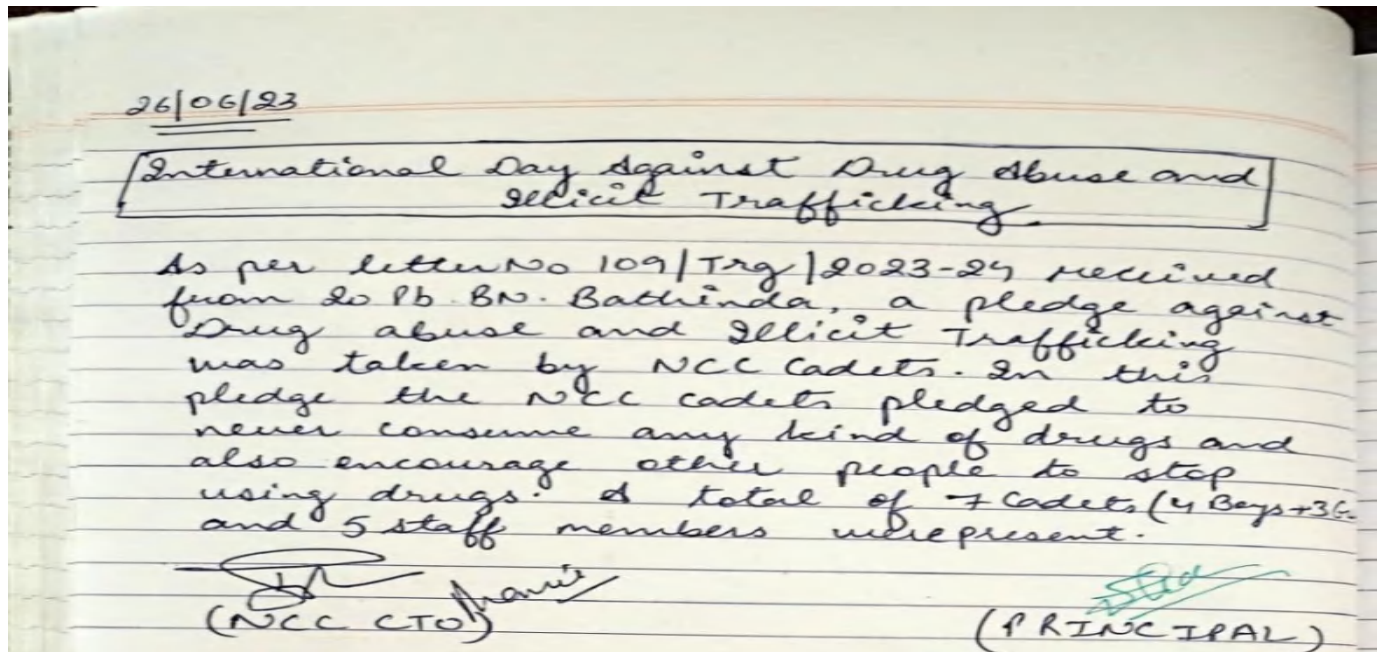 26/06/23
International Day Against Drug Abuse and
Illicit Trafficking
As per letter No 109/Trg/2023-24 received
from 20 Pb. BN. Bathinda, a pledge against
Drug abuse and Illicit Trafficking
was taken by NCC Cadets. In this
pledge the NCC cadets pledged to
never consume any kind of drugs and
also encourage other people to stop
using drugs. A total of 7 Cadets (4 Boys+3G
and 5 staff members were present.
(NCC CTO)
(PRINCIPAL)